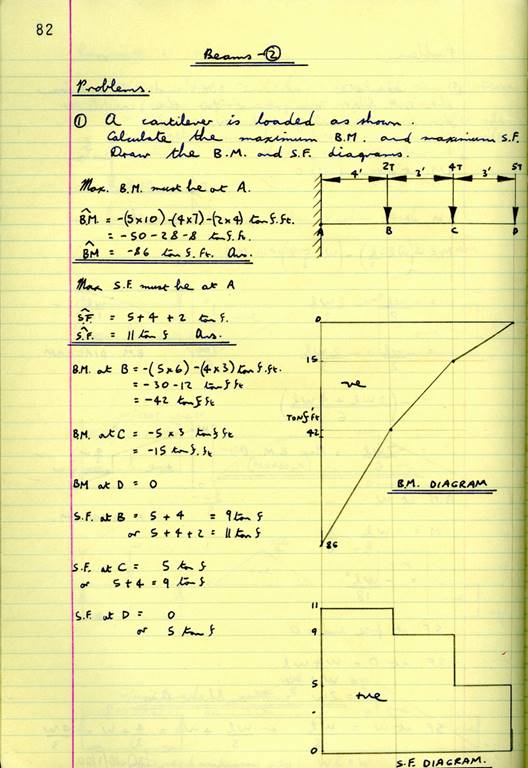 82
Beams - ②
Problems.
① A cantilever is loaded as shown.
Calculate the maximum B.M. and maximum S.F.
Draw the B.M. and S.F. diagrams.
2T 4T 5T
4' 3' 3'
A B C D
Max. B.M. must be at A.
B̂M = -(5×10)-(4×7)-(2×4) tonf.ft.
= -50-28-8 tonf.ft.
B̂M = -86 tonf.ft. Ans.
Max S.F. must be at A
ŜF = 5+4+2 tonf.
ŜF = 11 tonf Ans.
B.M. at B = -(5×6)-(4×3) tonf.ft.
= -30-12 tonf ft
= -42 tonf ft
B.M. at C = -5×3 tonf ft
= -15 tonf.ft
BM at D = 0
S.F. at B = 5+4 = 9 tonf
or 5+4+2 = 11 tonf
S.F. at C = 5 tonf
or 5+4 = 9 tonf
S.F. at D = 0
or 5 tonf
0
15
-ve
TONf'ft
42
86
B.M. DIAGRAM
11
9
5
+ve
0
S.F. DIAGRAM.